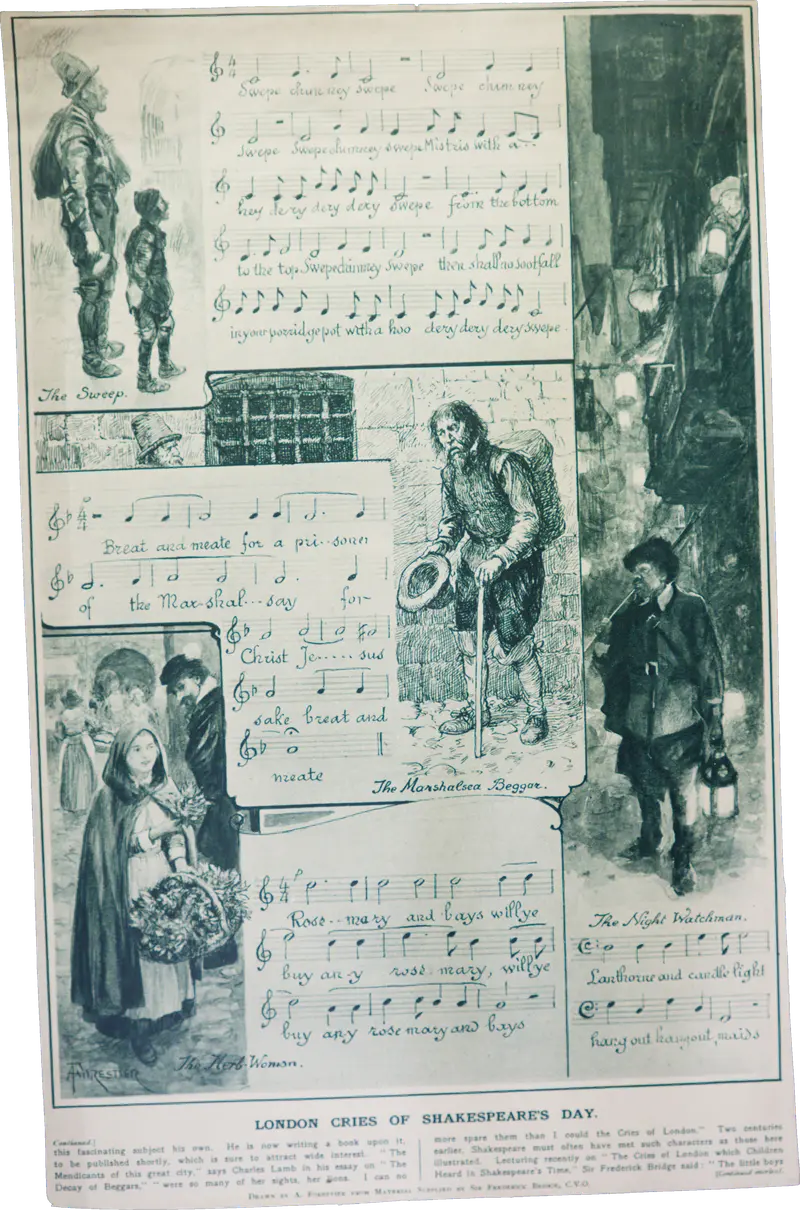 Swepe chimney swepe Swepe chimney
Swepe Swepe chimney swepe Mistris with a
hey dery dery dery swepe from the bottom
to the top Swepe chimney Swepe then shall no soot fall
in your porridge pot with a hoo dery dery dery swepe.
The Sweep.
Breat and meate for a pri-soner
of the Mar-shal...say for
Christ Je......sus
sake breat and
meate
The Marshalsea Beggar.
Rose--mary and bays will ye
buy an-y rose-mary, will ye
buy any rose mary and bays
The Herb-Woman.
The Night Watchman.
Lanthorne and candle light
hang out hang out, maids
LONDON CRIES OF SHAKESPEARE'S DAY.
Continued.]
this fascinating subject his own. He is now writing a book upon it,
to be published shortly, which is sure to attract wide interest. "The
Mendicants of this great city," says Charles Lamb in his essay on "The
Decay of Beggars," "were so many of her sights, her lions. I can no
more spare them than I could the Cries of London." Two centuries
earlier, Shakespeare must often have met such characters as those here
illustrated. Lecturing recently on "The Cries of London which Children
Heard in Shakespeare's Time," Sir Frederick Bridge said: "The little boys
[Continued
Drawn by A. Forestier from Material Supplied by Sir Frederick Bridge, C.V.O.